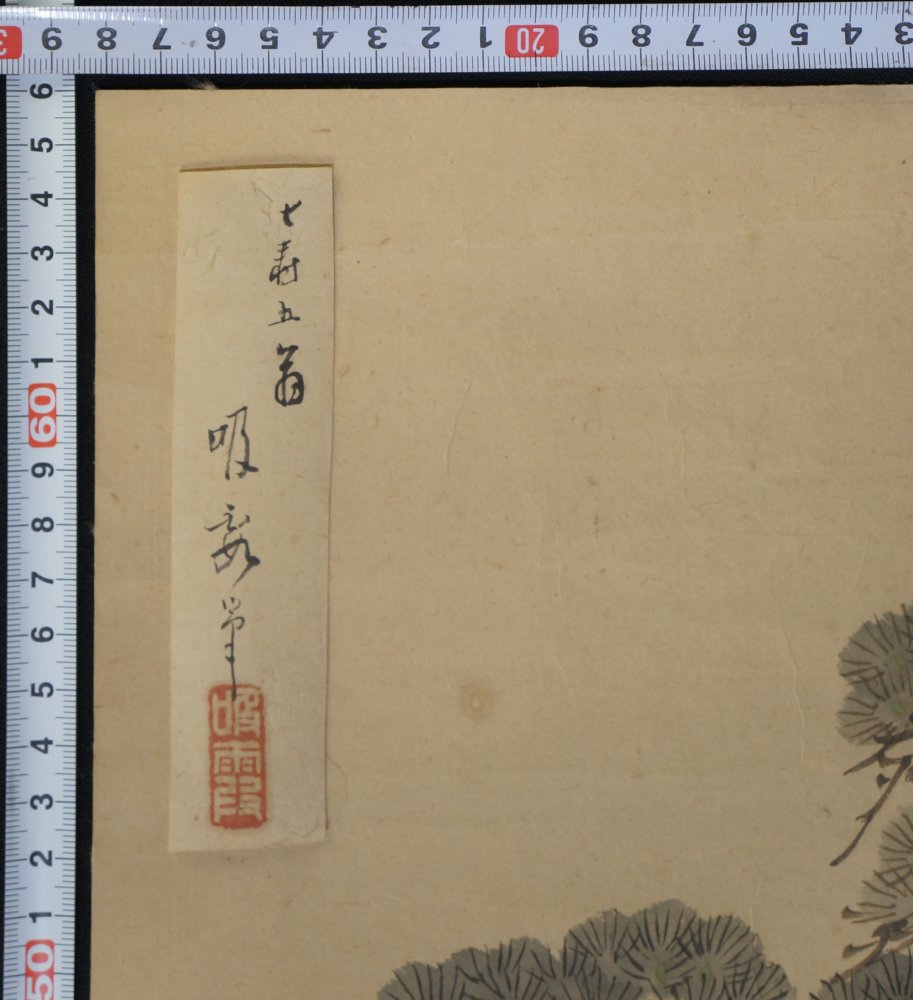 3 9 8 7 6 5 4 3 2 1 20 9 8 7 6 5 4 3
6 5 4 3 2 1 60 9 8 7 6 5 4 3 2 1 50
七寿五翁
吸霞筆
吸霞